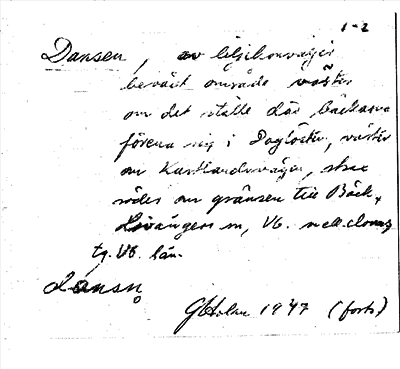 1-2
Dansen, av bilsikonvägen
beväxt område väster
om det ställe där bäckarna
förena sig i Dagloster, väster
om Kustlandsvägen, strax
söder om gränsen till Bäck,
Lövångers sn, Vb. mell.
tg. Vb. län.
dansn
GHolm 1947 (forts)